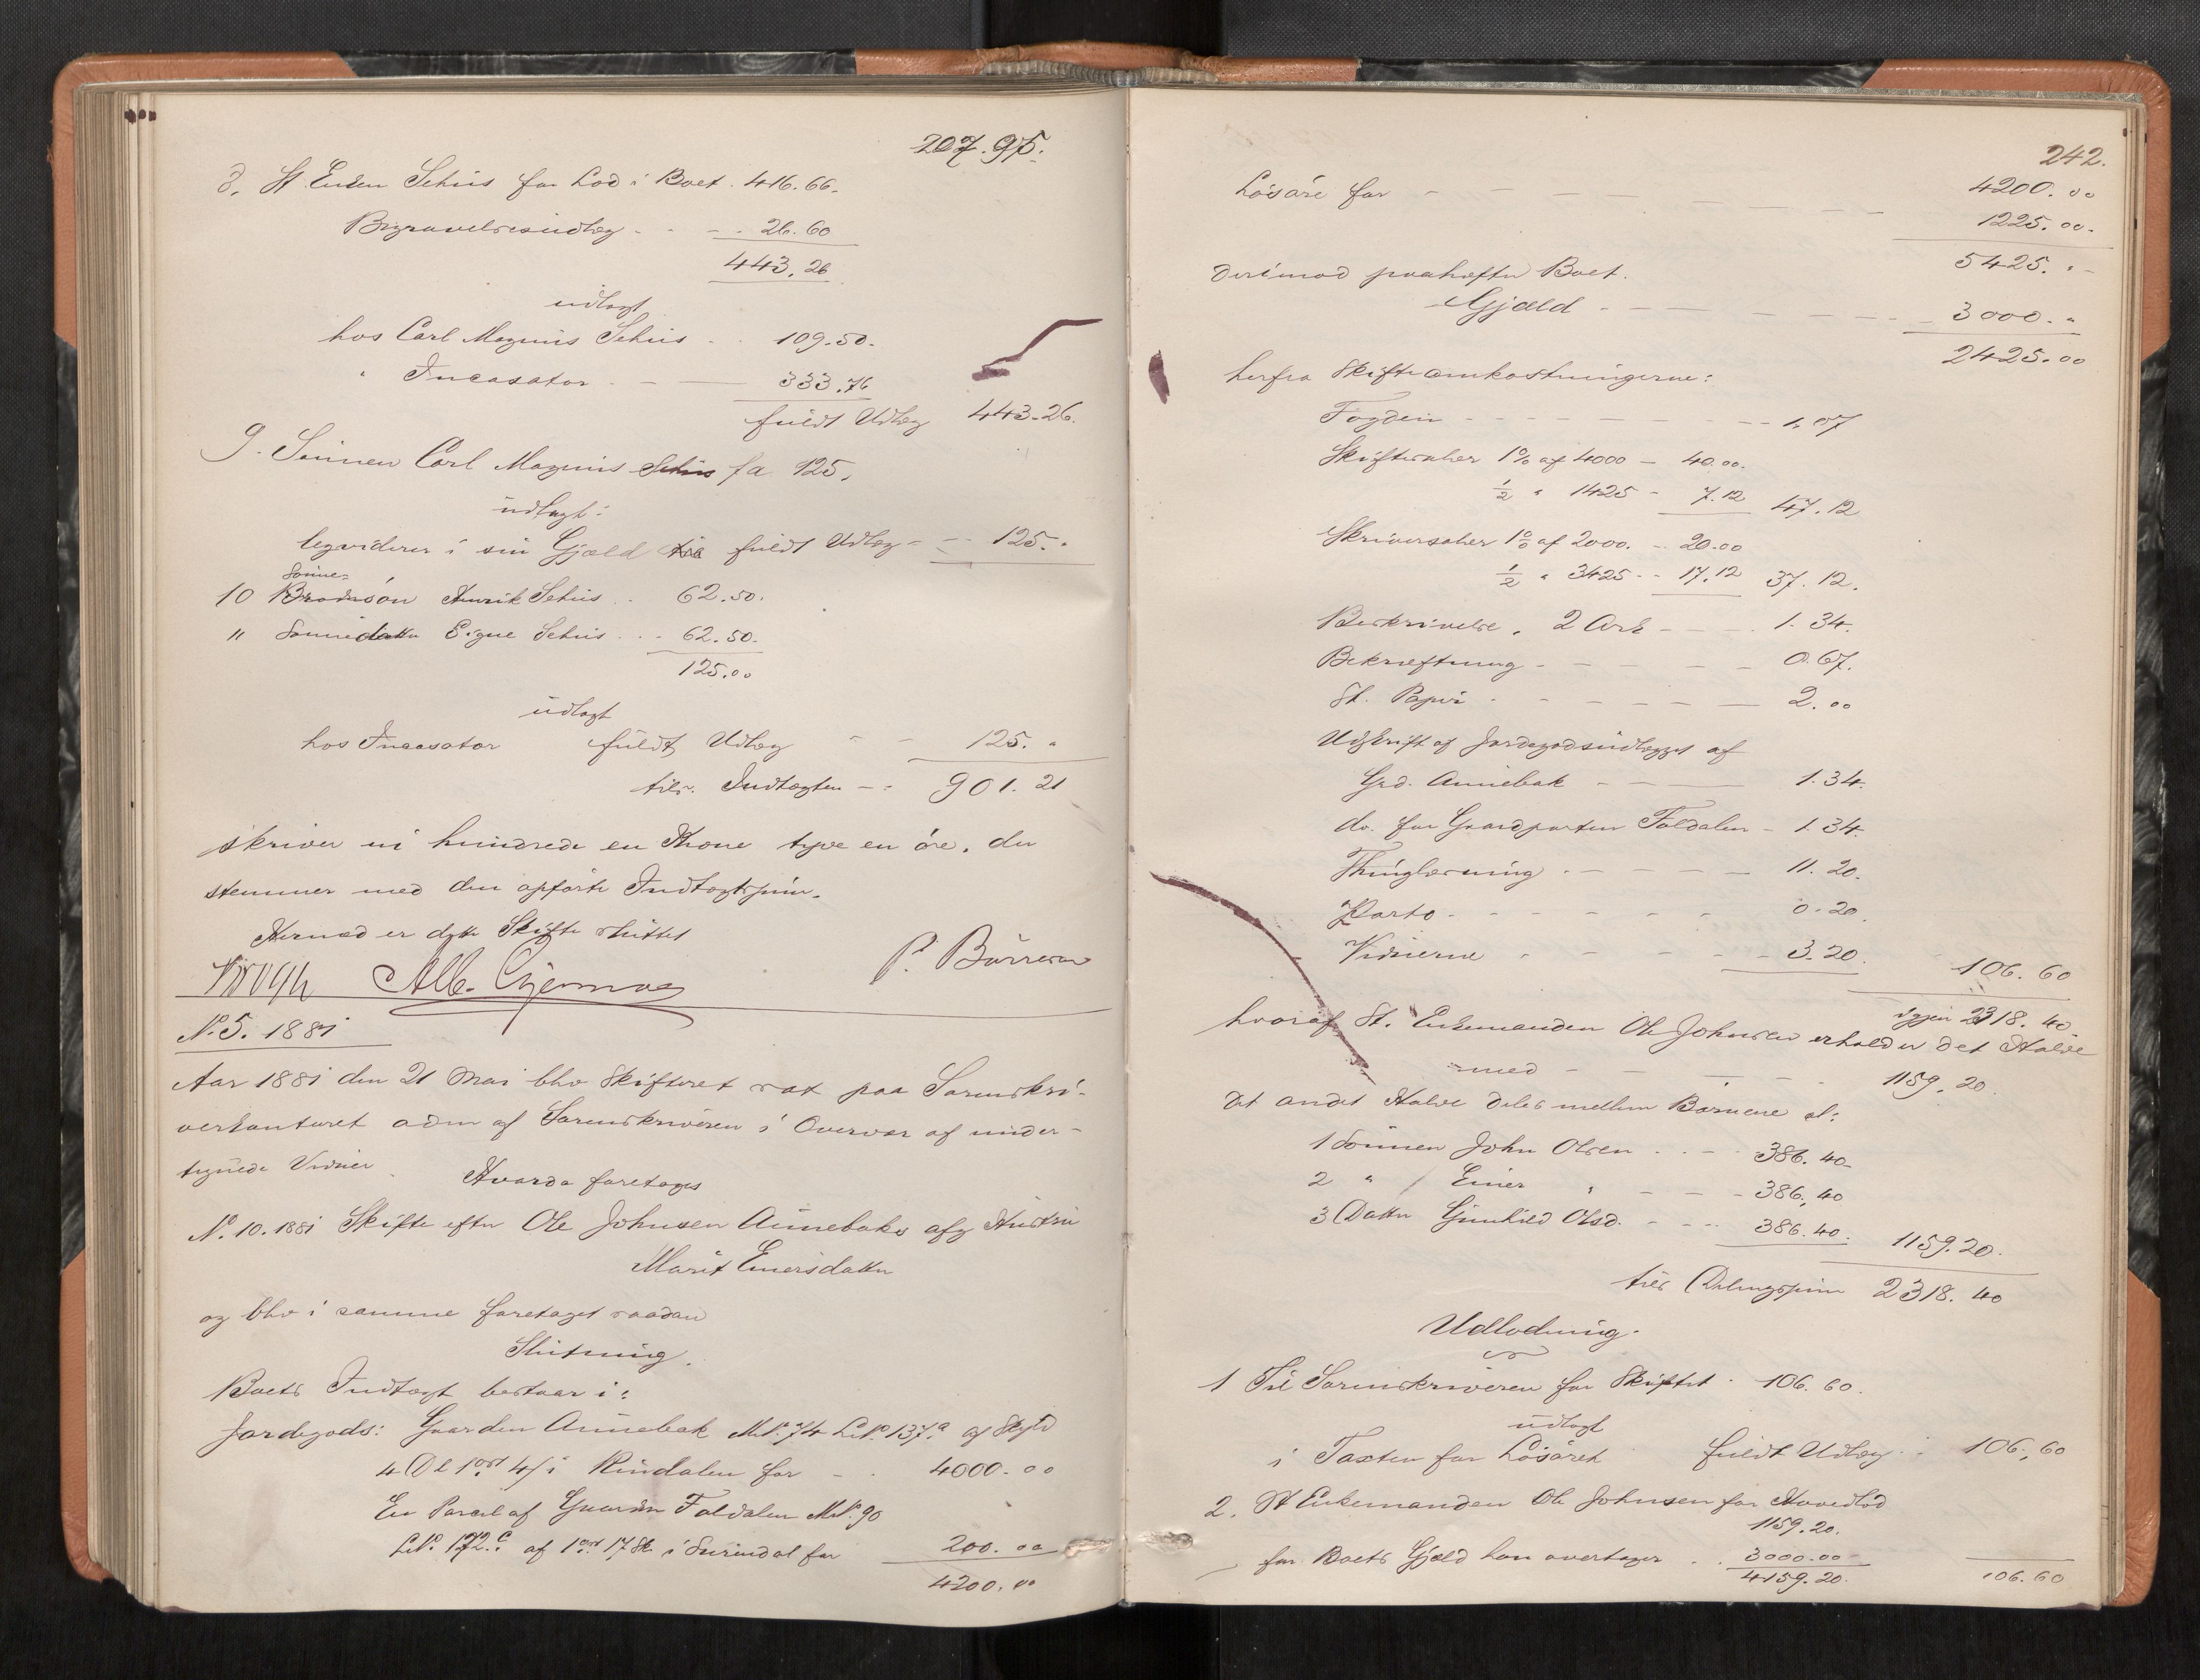 207.95.
8. St. Enken Schus for Lod i Boet . 416.66.
Begravelsesudlæg - - - 26.60
443.26
udlagt
hos Carl Magnus Schus - 109.50.
" Incasator - - 333.76
fuldt Udlæg 443.26.
9. Sønnen Carl Magnus Schus fa 125.
udlagt:
leqviderer i sin Gjæld fuldt Udlæg - - 125. "
Sønne=
10 Brodersøn Henrik Schus . . 62.50.
11 Sønnedatter Signe Schus . . - 62.50.
125.00
udlagt
hos Incasator fuldt Udlæg - - 125. "
tils. Indtægten - - 901.21
skriver ni hundrede en Krone tyve en øre, der
stemmer med den opførte Indtægtssum.
Hermed er dette Skifte sluttet
Krogh P. Börresen
No. 5. 1881
Aar 1881 den 21 Mai blev Skifteret sat paa Sorenskri-
verkontoret adm af Sorenskriveren i Overvær af under-
tegnede Vidner. Hvorda foretoges
No. 10. 1881 Skifte efter Ole Johnsen Aunebaks afg Hustru
Marit Einersdatter
og blev i samme foretaget saadan
Slutning.
Boets Indtægt bestaar i:
Jordegods: Gaarden Aunebak M.No. 74 L.No. 137a af Skyld
4 Dl 1 ort 4 s i Rindalen for - . 4000.00
En Parcel af Gaarden Foldalen M.No. 90
L.No. 172c. af 1 ort 17 sk i Surendal for 200.00
4200.00
242.
4200.00
Løsøre for - - - - - - 1225.00.
5425. " -
derimod paahefter Boet.
Gjæld - - - - - - 3000. "
2425.00
herfra Skifteomkostningerne:
Fogden - - - - - - - 1.07
Skiftesaler 1% af 4000 - 40.00.
1/2 " 1425 - 7.12 47.12
Skriversaler 1% af 2000. - 20.00
1/2 " 3425 - - 17.12 37.12.
Beskrivelse, 2 Ark - - - 1.34.
Bekræftning - - - - - 0.67.
St. Papir - - - - - - 2.00
Udskrift af Jordegodsudlægget af
Grd. Aunebak - - - 1.34.
do. for Gaardparten Foldalen - 1.34.
Thinglæsning - - - - - 11.20.
Porto - - - - - - 0.20.
Vidnerne - - - - - - 3.20. 106.60
igjen 2318.40.
hvoraf St. Enkemanden Ole Johnsen erholder det Halve
med - - - - - 1159.20
Det andet Halve deles mellem Børnene sl:
1 Sønnen John Olsen . . - 386.40-
2 " Einer " - - - 386.40
3 Datter Gunhild Olsd. - - - 386.40. 1159.20.
tils Delingssum 2318.40
Udlodning.
1 Til Sorenskriveren for Skiftet . 106.60.
udlagt
i Taxten for Løsøret fuldt Udlæg - . 106.60
2. St Enkemanden Ole Johnsen for Hovedlod
1159.20.
for Boets Gjæld han overtager . . 3000.00
4159.20. 106.60